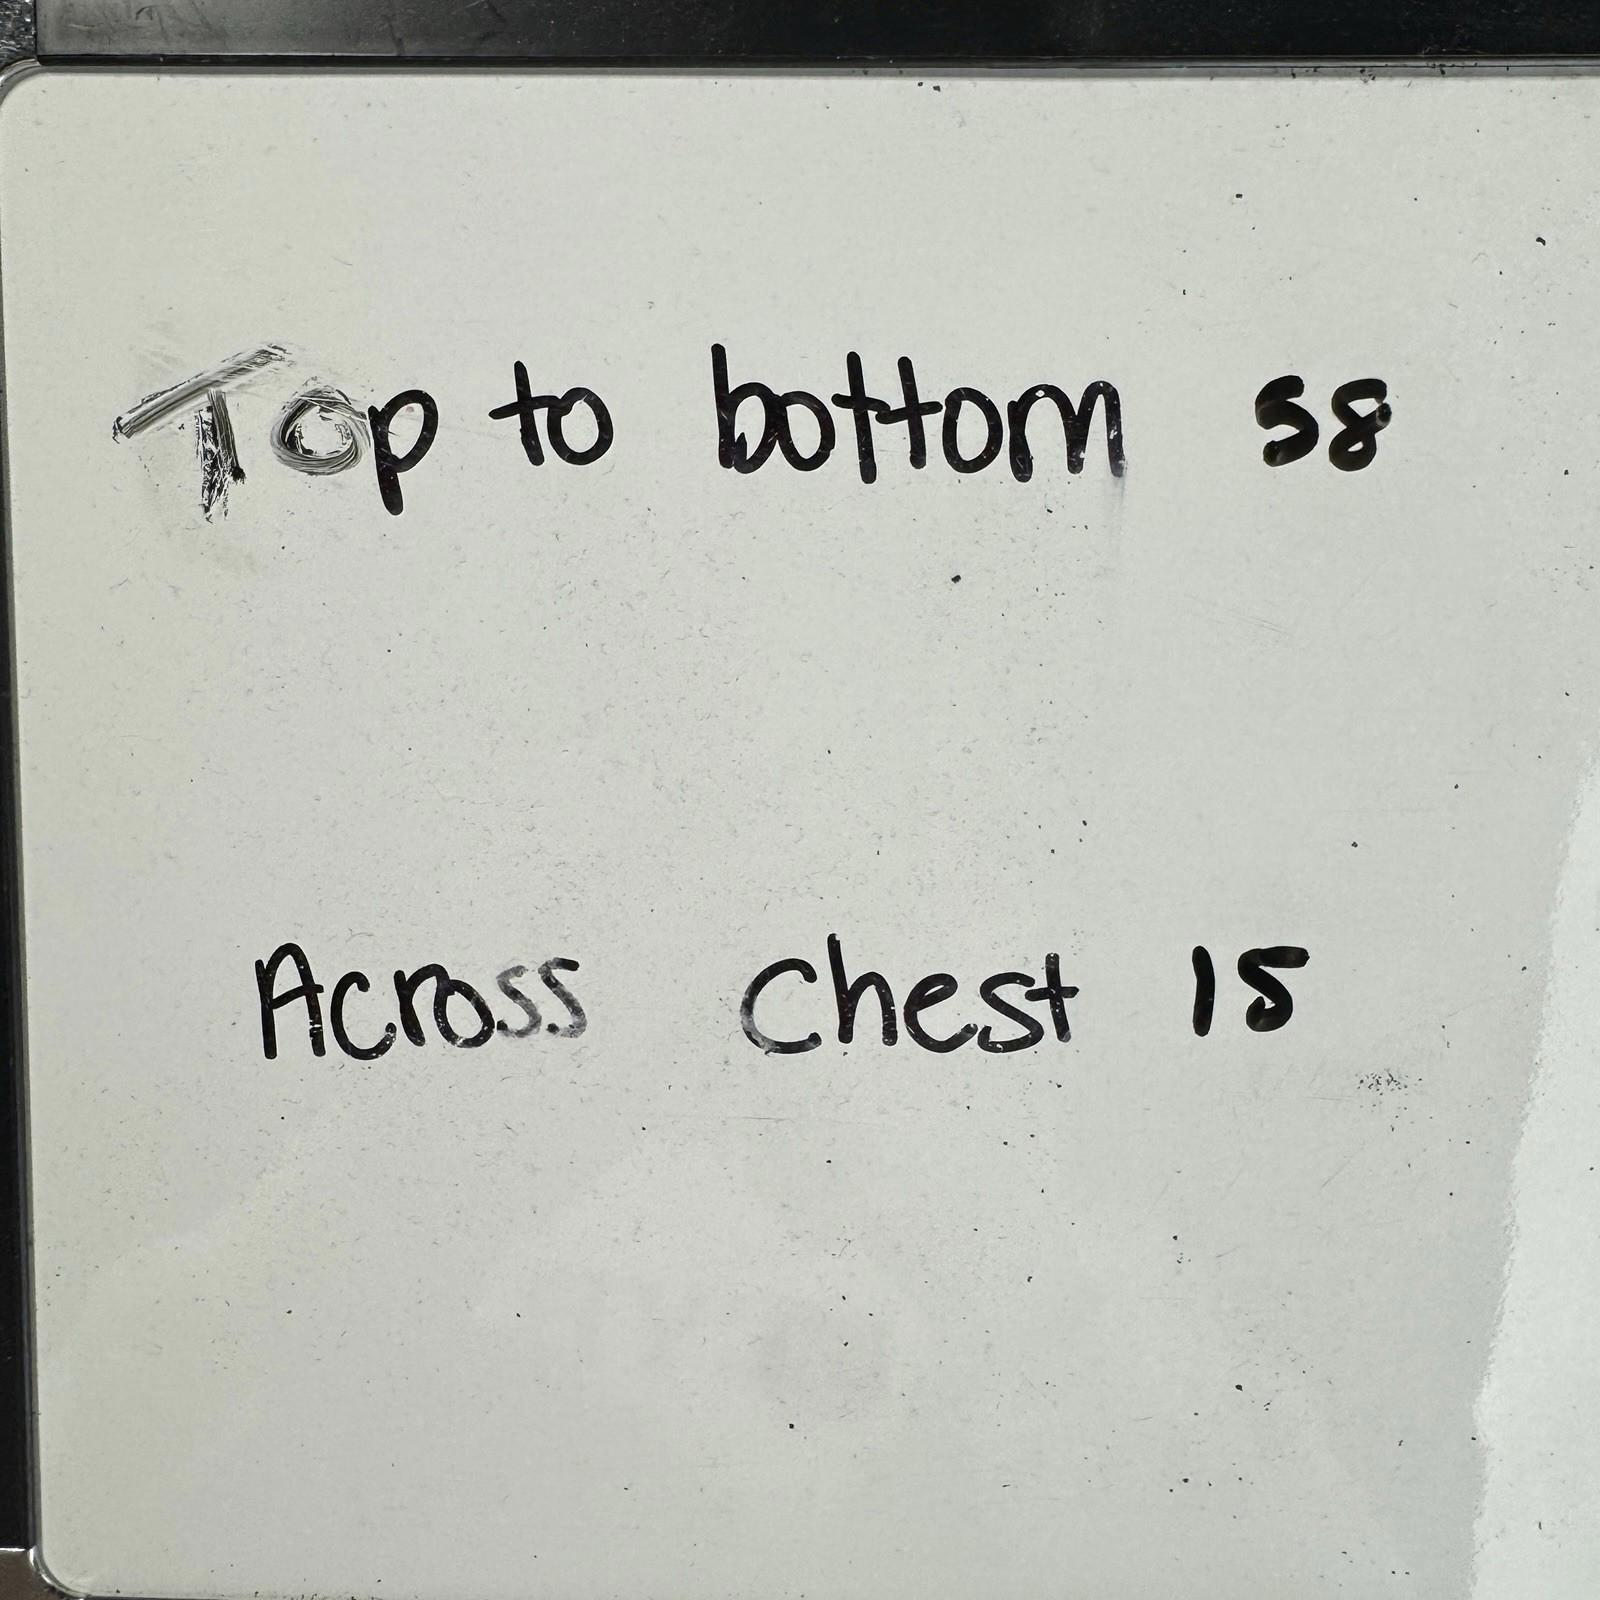 Top to bottom 58
Across Chest 15